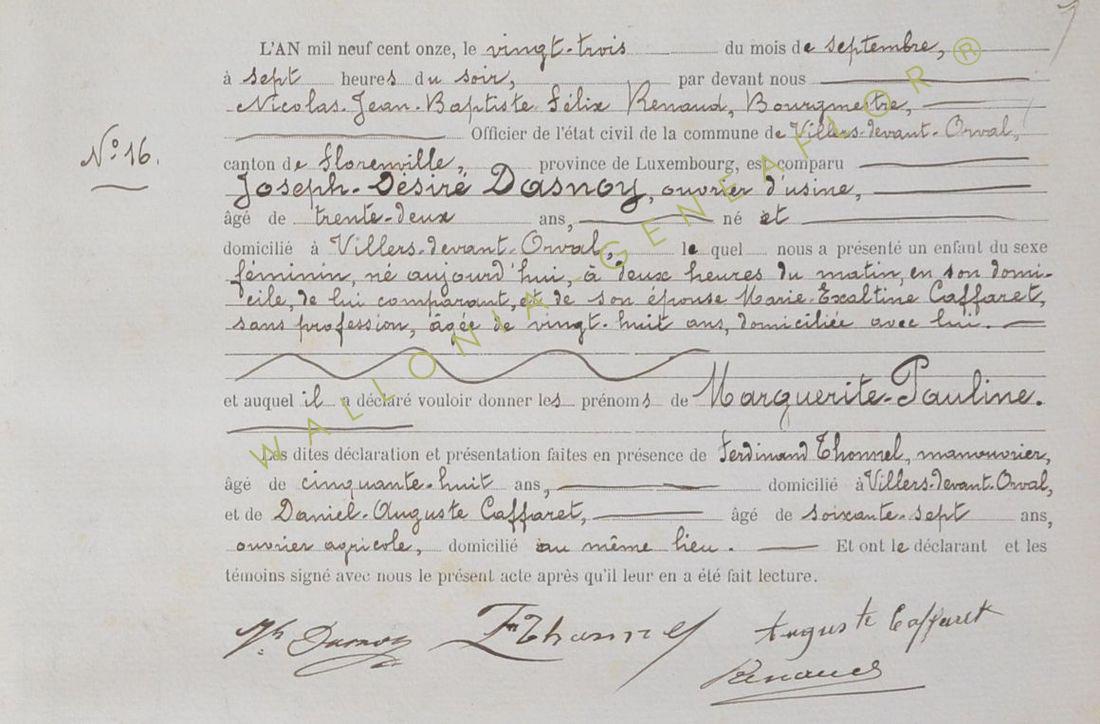 L'AN mil neuf cent onze, le vingt-trois du mois de septembre,
à sept heures du soir, par devant nous
Nicolas-Jean-Baptiste Félix Renaud, Bourgmestre,
Officier de l'état civil de la commune de Villers-devant-Orval,
N° 16.
canton de Florenville, province de Luxembourg, est comparu
Joseph-Désiré Dasnoy, ouvrier d'usine,
âgé de trente-deux ans, né et
domicilié à Villers-devant-Orval, le quel nous a présenté un enfant du sexe
féminin, né aujourd'hui, à deux heures du matin, en son domi-
cile, de lui comparant, et de son épouse Marie-Exaltine Caffaret,
sans profession, âgée de vingt-huit ans, domiciliée avec lui.
et auquel il a déclaré vouloir donner les prénoms de Marguerite-Pauline.
Les dites déclaration et présentation faites en présence de Ferdinand Thonnel, manouvrier,
âgé de cinquante-huit ans, domicilié à Villers-devant-Orval,
et de Daniel-Auguste Caffaret, âgé de soixante-sept ans,
ouvrier agricole, domicilié au même lieu. Et ont le déclarant et les
témoins signé avec nous le présent acte après qu'il leur en a été fait lecture.
Dasnoy Thonnel Auguste Caffaret
Renaud
WALLONIA GENEAFOR ®